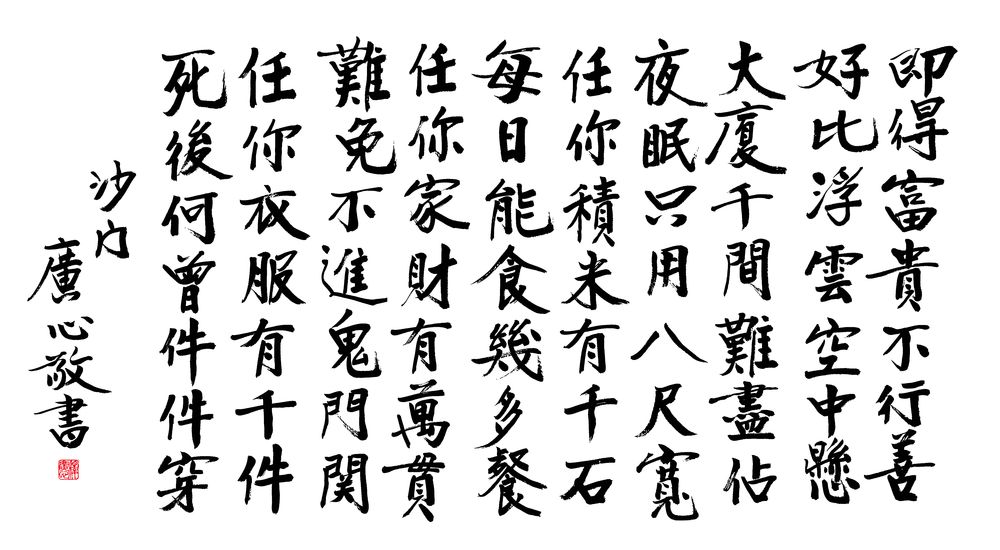 即得富貴不行善
好比浮雲空中懸
大廈千間難盡佔
夜眠只用八尺寬
任你積米有千石
每日能食幾多餐
任你家財有萬貫
難免不進鬼門関
任你衣服有千件
死後何曾件件穿
沙门
廣心敬書